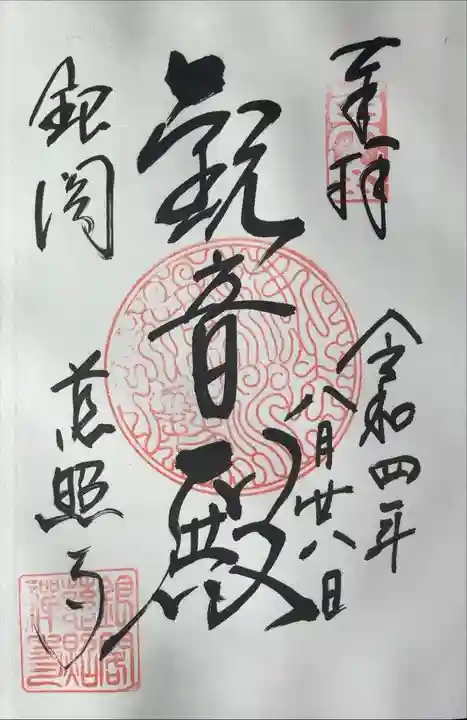 奉拝
令和四年
八月廿八日
観音殿
銀閣
慈照寺